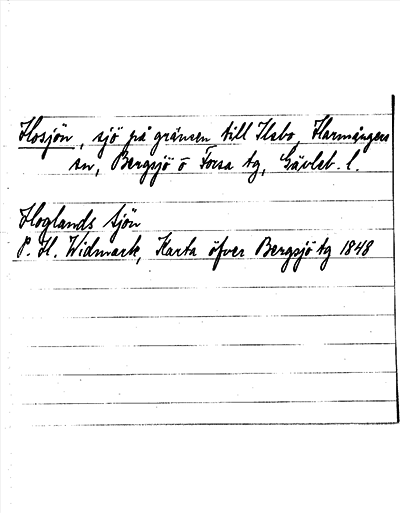 Hosjön, sjö på gränsen till Ilsbo, Harmångers
sn, Bergsjö o Forsa tg, Gävleb. l.
Hoglands Sjön
P. H. Widmark, Karta öfver Bergsjö tg 1848